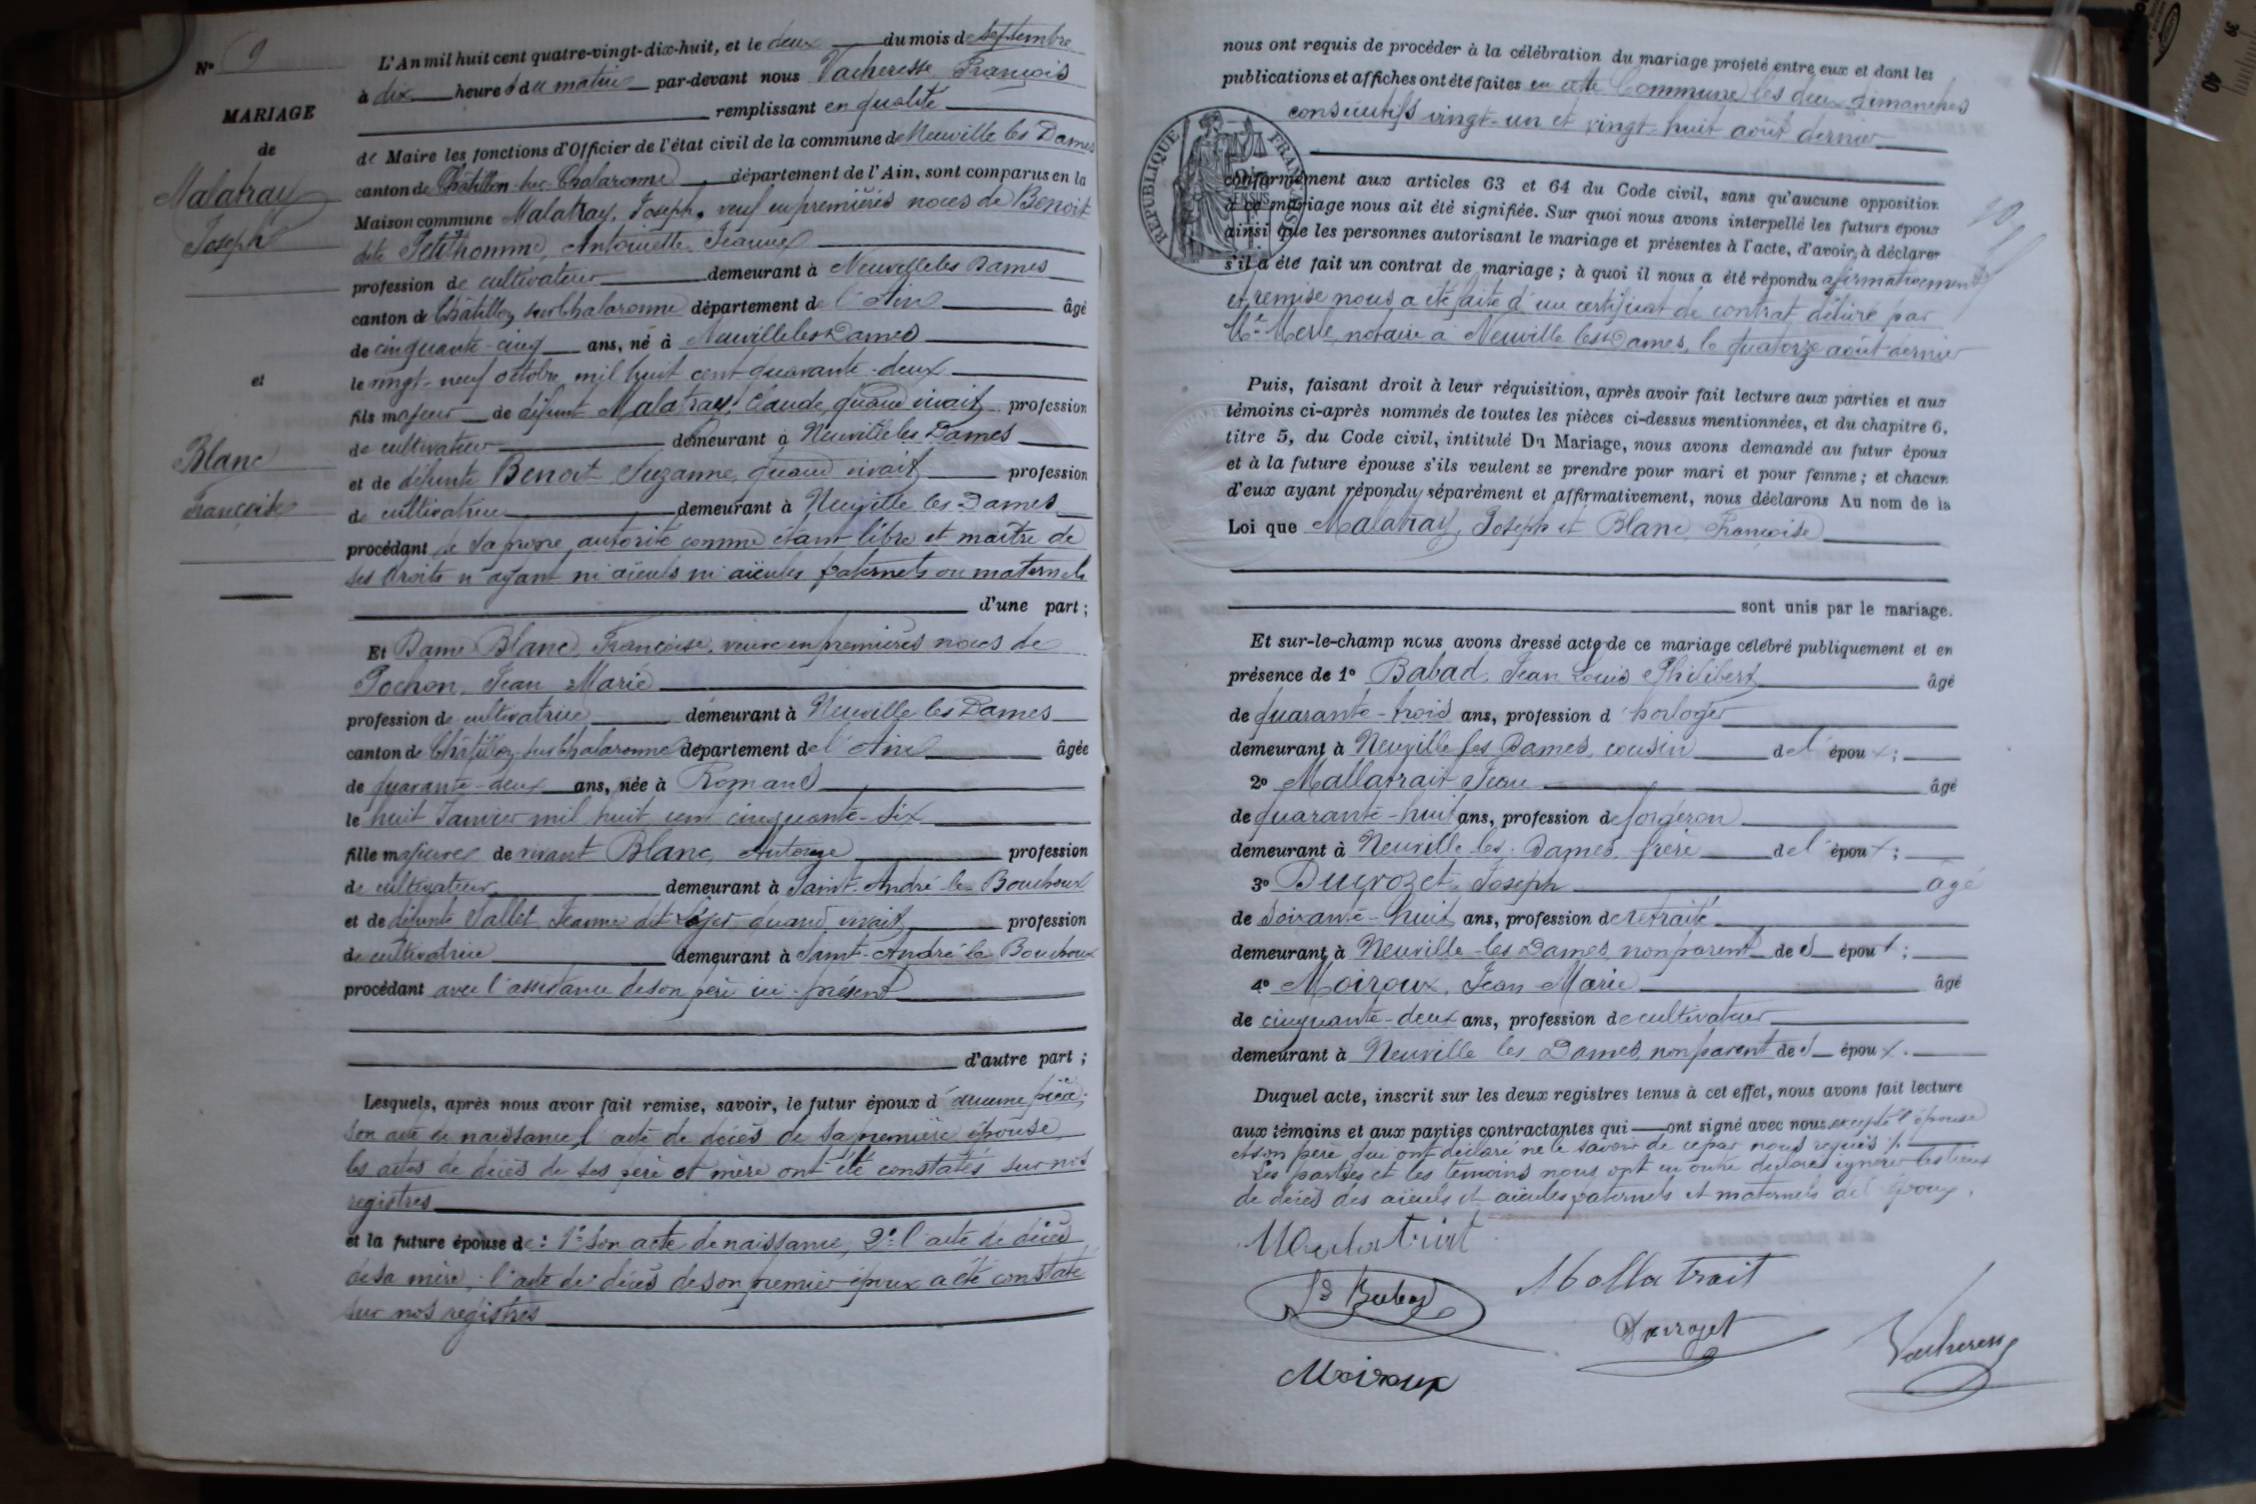 N° 9
MARIAGE
de
Malatray
Joseph
et
Blanc
Françoise
L'An mil huit cent quatre-vingt-dix-huit, et le deux du mois de septembre
à dix heures du matin par-devant nous Vacheresse François
remplissant en qualité
de Maire les fonctions d'Officier de l'état civil de la commune de Neuville les Dames
canton de Châtillon-sur-Chalaronne département de l'Ain, sont comparus en la
Maison commune Malatray, Joseph, veuf en premières noces de Benoit
dite Petithomme, Antoinette Jeanne
profession de cultivateur demeurant à Neuville les Dames
canton de Châtillon sur Chalaronne département de l'Ain âgé
de cinquante-cinq ans, né à Neuville les Dames
le vingt-neuf octobre mil huit cent quarante-deux
fils majeur de défunt Malatray Claude, quand vivait profession
de cultivateur demeurant à Neuville les Dames
et de défunte Benoit Suzanne, quand vivait profession
de cultivatrice demeurant à Neuville les Dames
procédant de sa propre autorité comme étant libre et maître de
ses droits n'ayant ni aïeuls ni aïeules paternels ou maternels
d'une part;
Et Dame Blanc, Françoise, veuve en premières noces de
Pochon, Jean Marie
profession de cultivatrice demeurant à Neuville les Dames
canton de Châtillon-sur-Chalaronne département de l'Ain âgée
de quarante-deux ans, née à Romans
le huit Janvier mil huit cent cinquante-six
fille majeure de vivant Blanc, Antoine profession
de cultivateur demeurant à Saint-André le Bouchoux
et de défunte Sallet Jeanne dit quand vivait profession
de cultivatrice demeurant à Saint-André le Bouchoux
procédant avec l'assistance de son père ici présent
d'autre part;
Lesquels, après nous avoir fait remise, savoir, le futur époux d'aucune pièce;
son acte de naissance, l'acte de décès de sa première épouse,
les actes de décès de ses père et mère ont été constatés sur nos
registres
et la future épouse de: 1° son acte de naissance, 2° l'acte de décès
de sa mère; l'acte de décès de son premier époux a été constaté
sur nos registres
nous ont requis de procéder à la célébration du mariage projeté entre eux et dont les
publications et affiches ont été faites en cette Commune les deux dimanches
consécutifs vingt-un et vingt-huit août dernier
RÉPUBLIQUE FRANÇAISE
conformément aux articles 63 et 64 du Code civil, sans qu'aucune opposition
à ce mariage nous ait été signifiée. Sur quoi nous avons interpellé les futurs époux
ainsi que les personnes autorisant le mariage et présentes à l'acte, d'avoir à déclarer
s'il a été fait un contrat de mariage; à quoi il nous a été répondu afirmativement
et remise nous a été faite d'un certificat de contrat délivré par
Me Merle, notaire à Neuville les Dames, le quatorze août dernier
Puis, faisant droit à leur réquisition, après avoir fait lecture aux parties et aux
témoins ci-après nommés de toutes les pièces ci-dessus mentionnées, et du chapitre 6,
titre 5, du Code civil, intitulé Du Mariage, nous avons demandé au futur époux
et à la future épouse s'ils veulent se prendre pour mari et pour femme; et chacun
d'eux ayant répondu séparément et affirmativement, nous déclarons Au nom de la
Loi que Malatray, Joseph et Blanc, Françoise
sont unis par le mariage.
Et sur-le-champ nous avons dressé acte de ce mariage célébré publiquement et en
présence de 1° Babad, Jean Louis Philibert âgé
de quarante-trois ans, profession d'horloger
demeurant à Neuville les Dames, cousin de l'époux;
2° Mallatrait Jean âgé
de quarante-huit ans, profession de forgeron
demeurant à Neuville les Dames, frère de l'époux;
3° Ducrozet, Joseph âgé
de soixante-huit ans, profession de retraité
demeurant à Neuville-les-Dames non parent des époux;
4° Moiroux, Jean Marie âgé
de cinquante-deux ans, profession de cultivateur
demeurant à Neuville les Dames, non parent des époux.
Duquel acte, inscrit sur les deux registres tenus à cet effet, nous avons fait lecture
aux témoins et aux parties contractantes qui ont signé avec nous excepté l'épouse
et son père qui ont déclaré ne le savoir de ce par nous requis
Les parties et les témoins nous ont en outre déclaré ignorer les lieux
de décès des aïeuls et aïeules paternels et maternels de l'époux.
Mallatrait
Babad
Mollatrait
Ducrozet
Vacheresse
Moiroux